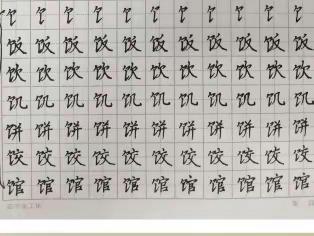 饣 饣 饣 饣 饣 饣 饣 饣 饣 饣 饣
饭 饭 饭 饭 饭 饭 饭 饭 饭 饭 饭
饮 饮 饮 饮 饮 饮 饮 饮 饮 饮 饮
饥 饥 饥 饥 饥 饥 饥 饥 饥 饥 饥
饼 饼 饼 饼 饼 饼 饼 饼 饼 饼 饼
饺 饺 饺 饺 饺 饺 饺 饺 饺 饺 饺
馆 馆 馆 馆 馆 馆 馆 馆 馆 馆 馆